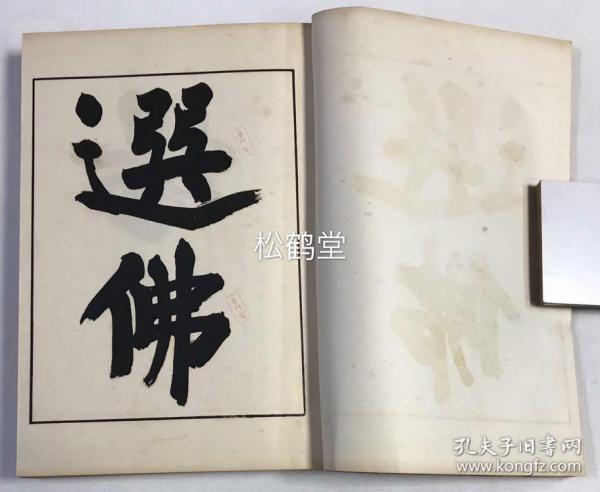 選
佛
松鹤堂
孔夫子旧书网
www.kongfz.com